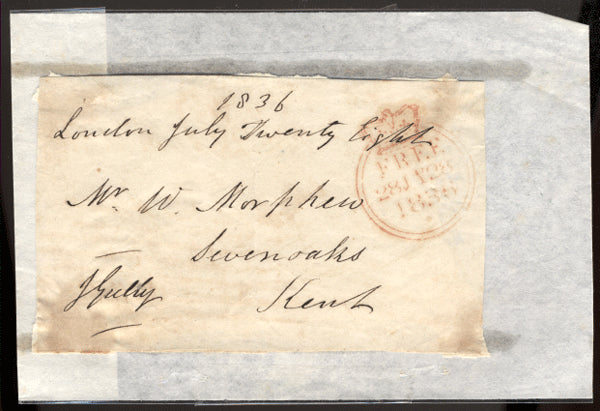 1836
London July Twenty Eight
Mr. W. Morphew
Sevenoaks
Kent
J Gully
FREE
28 JY 28
1836